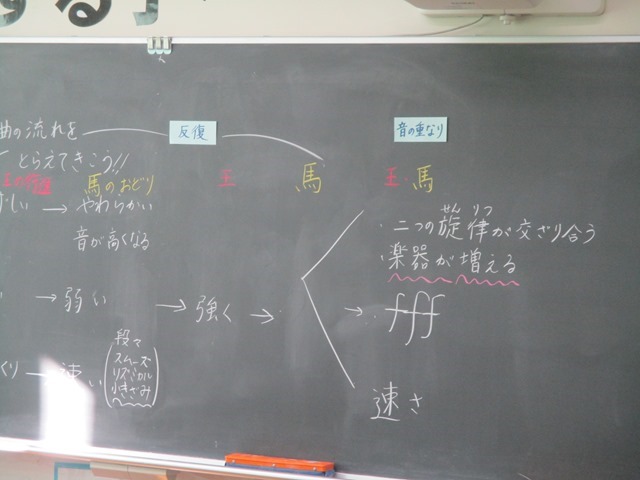 する
曲の流れを
反復
音の重なり
とらえてきこう!!
王の行進
馬のおどり
王
馬
王・馬
→ やわらかい
音が高くなる
・二つの旋律が交ざり合う
せん りつ
・楽器が増える
→ 弱い
→ 強く →
→ fff
→ 速い
段々
スムーズ
リズミカル
小きざみ
速さ